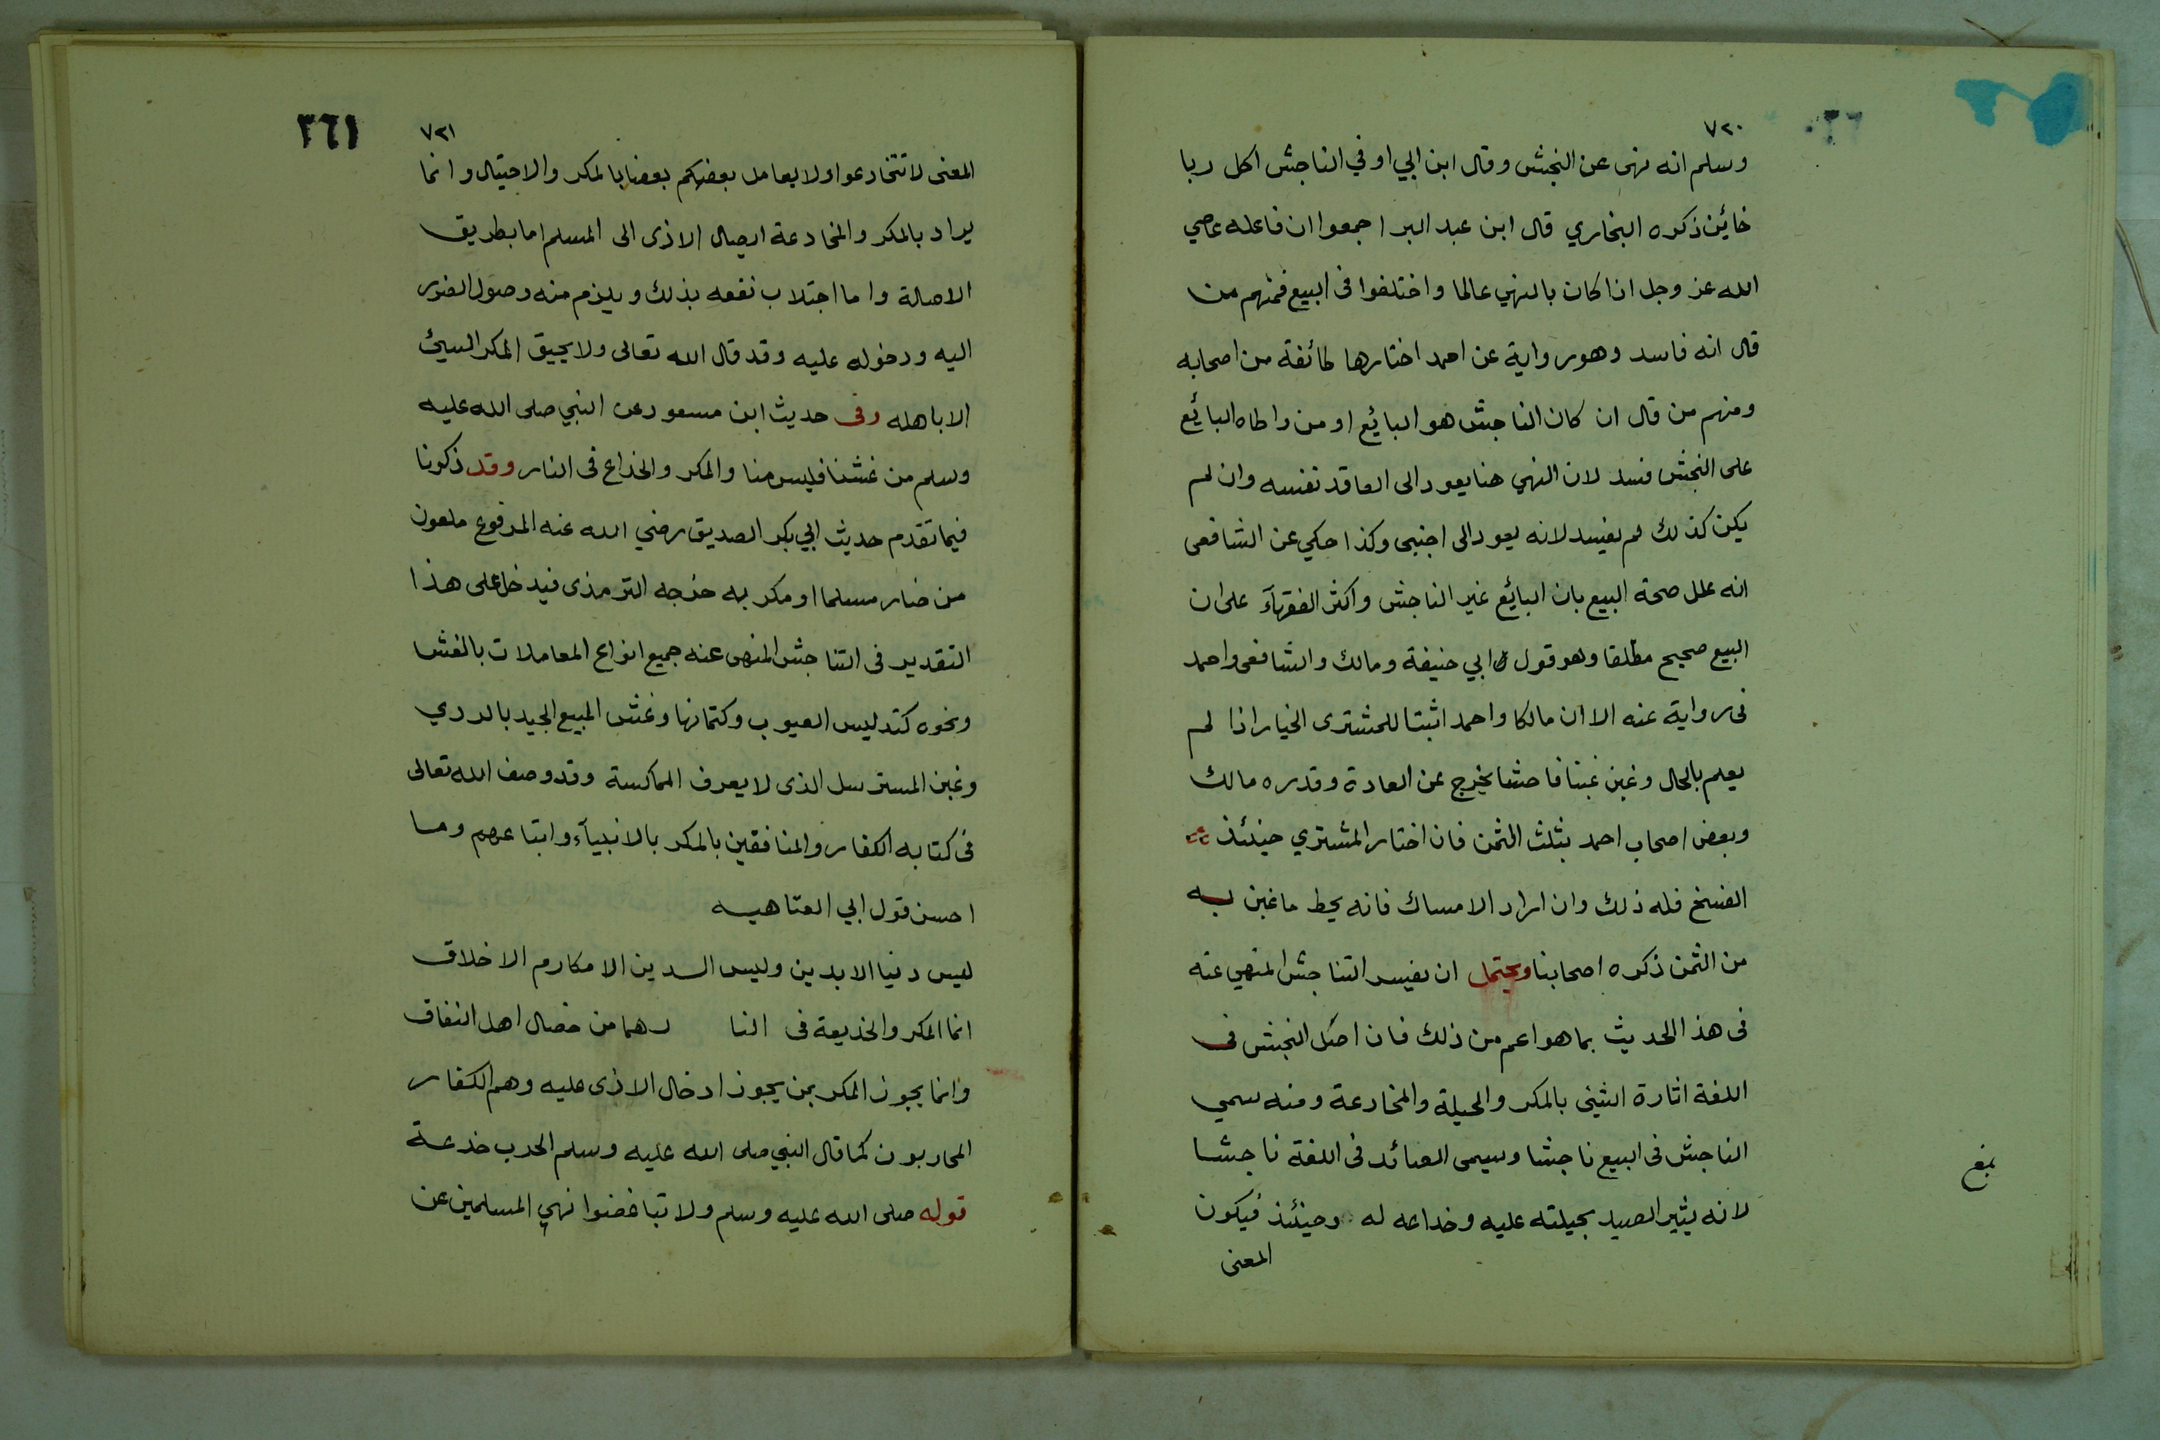 ٧٢٠
وسلم انه نهى عن النجش وقال ابن ابي اوفي الناجش اكل ربا
خائن ذكره البخاري قال ابن عبد البر اجمعوا ان فاعله عاصي
الله عز وجل اذا كان بالنهي عالما واختلفوا في البيع فمنهم من
قال انه فاسد وهو رواية عن احمد اختارها طائفة من اصحابه
ومنهم من قال ان كان الناجش هو البائع او من واطاه البائع
على النجش فسد لان النهي هنا يعود الى العاقد نفسه وان لم
يكن كذلك لم يفسد لانه يعود الى اجنبى وكذا حكي عن الشافعى
انه علل صحة البيع بان البائع غير الناجش واكثر الفقهآء على ان
البيع صحيح مطلقا وهو قول ابي حنيفة ومالك والشافعى واحمد
فى رواية عنه الا ان مالكا واحمد اثبتا للمشترى الخيار اذا لم
يعلم بالحال وغبن غبنا فاحشا يخرج عن العادة وقدره مالك
وبعض اصحاب احمد بثلث الثمن فان اختار المشتري حينئذ
الفسخ فله ذلك وان اراد الامساك فانه يحط ما غبن به
من الثمن ذكره اصحابنا ويحتمل ان يفسر التناجش المنهي عنه
فى هذا الحديث بما هو اعم من ذلك فان اصل النجش فى
اللغة اثارة الشئ بالمكر والحيلة والمخادعة ومنه سمي
الناجش فى البيع ناجشا وسمي الصائد فى اللغة ناجشا
لانه يثير الصيد بحيلته عليه وخداعه له وحينئذ فيكون
المعنى
٣٦١
٧٢١
المعنى لا تتخادعوا ولا يعامل بعضكم بعضا بالمكر والاحتيال وانما
يراد بالمكر والمخادعة ايصال الاذى الى المسلم اما بطريق
الاصالة واما اجتلاب نفعه بذلك ويلزم منه وصول الضرر
اليه ودخوله عليه وقد قال الله تعالى ولا يحيق المكر السيئ
الا باهله وفى حديث ابن مسعود عن النبي صلى الله عليه
وسلم من غشنا فليس منا والمكر والخداع فى النار وقد ذكرنا
فيما تقدم حديث ابي بكر الصديق رضي الله عنه المرفوع ملعون
من ضار مسلما او مكر به خرجه الترمذى فيدخل على هذا
التقدير فى التناجش المنهى عنه جميع انواع المعاملات بالغش
ونحوه كتدليس العيوب وكتمانها وغش المبيع الجيد بالردي
وغبن المسترسل الذى لا يعرف المماكسة وقد وصف الله تعالى
فى كتابه الكفار والمنافقين بالمكر بالانبيآء واتباعهم وما
احسن قول ابي العتاهيه
ليس دنيا الا بدين وليس الدين الا مكارم الاخلاق
انما المكر والخذيعة فى النا ر هما من خصال اهل النفاق
وانما يجوز المكر بمن يجوز ادخال الاذى عليه وهم الكفار
المحاربون كما قال النبي صلى الله عليه وسلم الحرب خدعة
قوله صلى الله عليه وسلم ولا تباغضوا نهي المسلمين عن